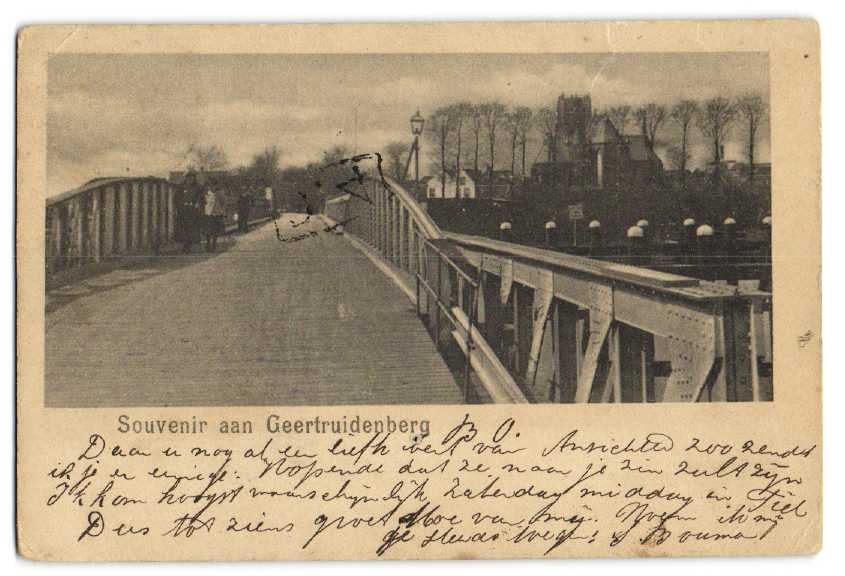 Souvenir aan Geertruidenberg B O.
Daar u nog al een liefhebert van Ansichten zoo zendt
ik je er einige. Hopende dat ze naar je zin zult zijn
Ik kom hoogst waarschijnlijk Zaterdag middag in Tiel
Dus tot ziens groet van mij. Noem ik mij
je steeds Bouma